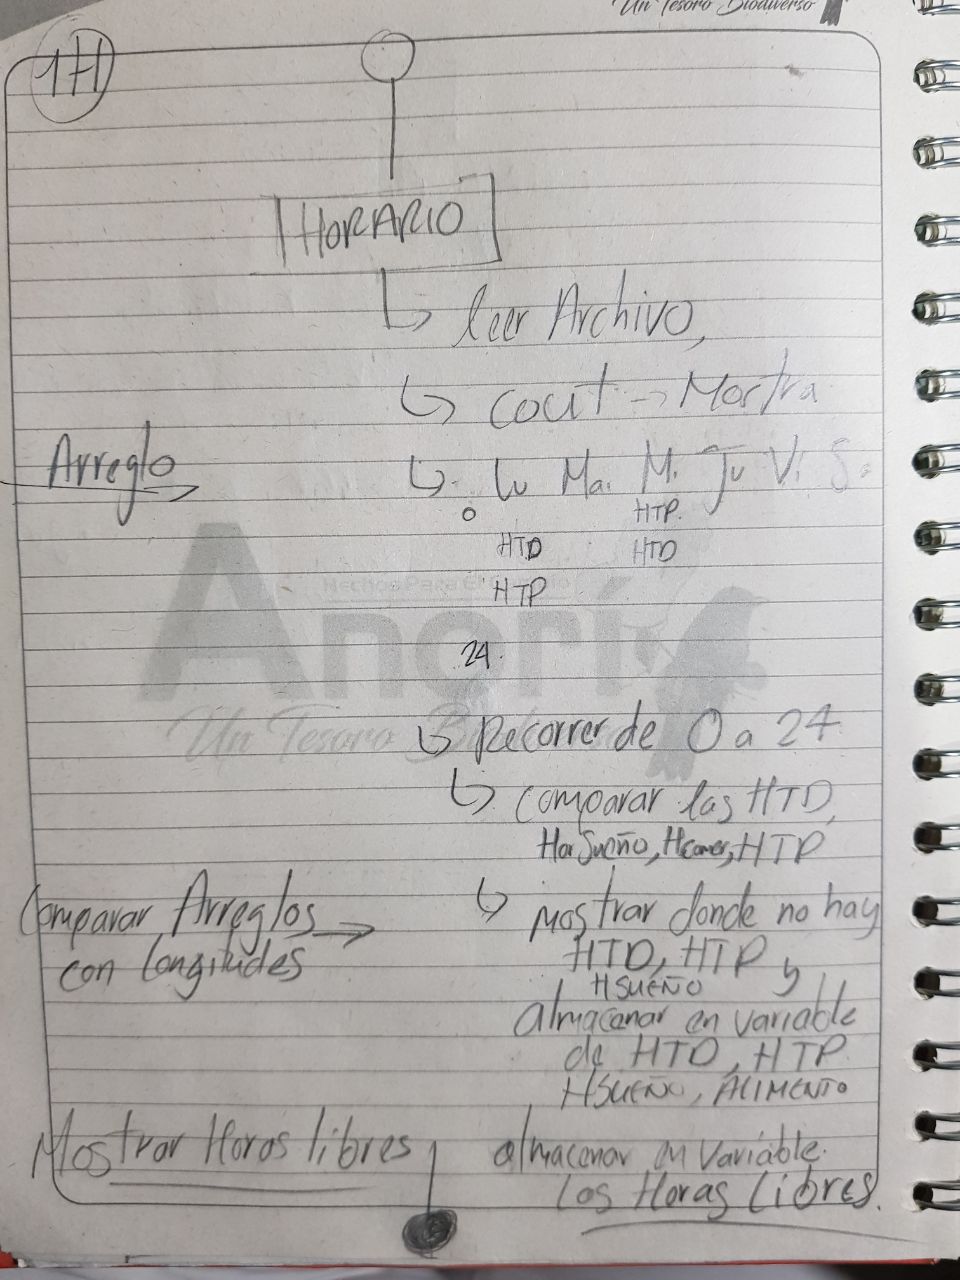 Un Tesoro Biodiverso
1H
HORARIO
leer Archivo,
cout → Mostra
Arreglo
Lu Ma. Mi Ju Vi Sa
0
HTP.
HTD HTD
HTP
Anorí
24.
Un Tesoro
Recorrer de 0 a 24
comparar las HTD,
Hor Sueño, Hcomer, HTP
Comparar Arreglos →
con longitudes
Mostrar donde no hay
HTD, HTP y
HSUEÑO
almacenar en variable
de HTD, HTP
HSUEÑO, ALIMENTO
Mostrar Horas libres
almacenar en variable.
los Horas Libres.